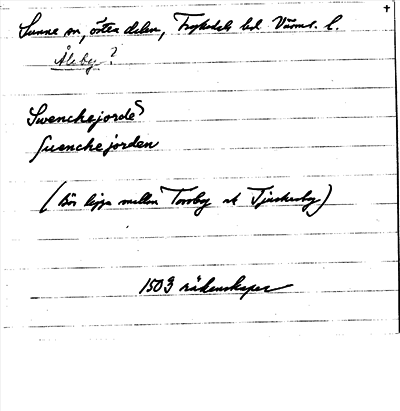 Sunne sn, östra delen, Fryksdals hd Värml. l.
Åleby?
Swenchejorde
suenchejorden
(Bör ligga mellan Torvby och Tjuskeby)
1503 räkenskaper